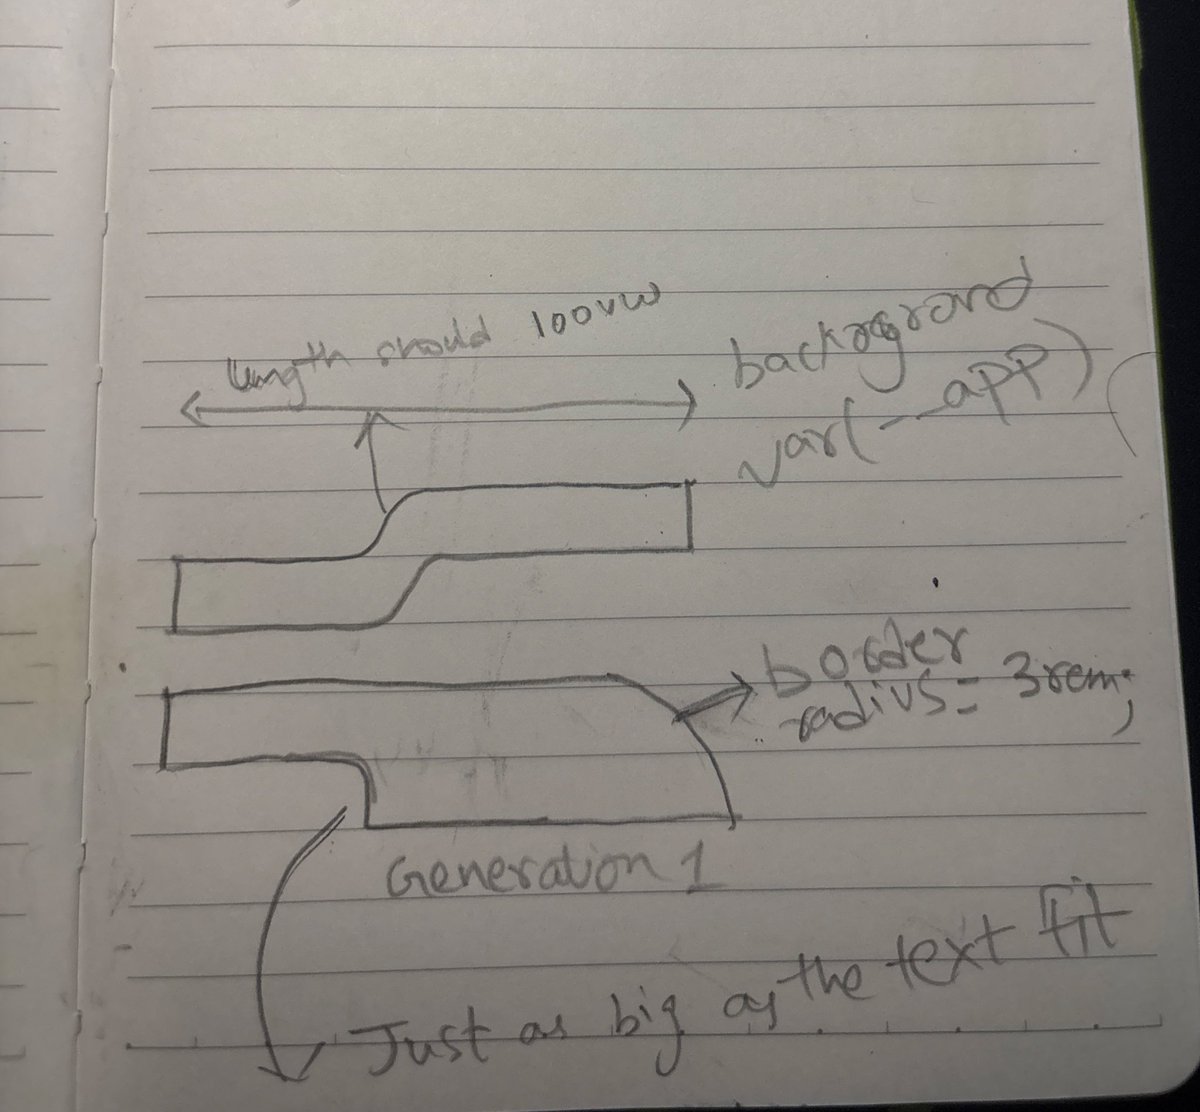 length should 100vw
backgrornd
var(--app)
border
radius: 3rem;
Generation 1
Just as big as the text fit